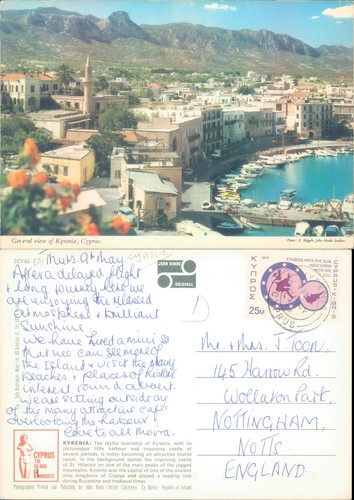 General view of Kyrenia, Cyprus.
Photo: E. Nägele, John Hinde Studios.
2CY40
Thurs. 9th May
After a delayed flight
& long journey here we
are enjoying the relaxed
atmosphere & brilliant
sunshine.
We have hired a mini so
that we can see more of
the Island & visit the many
beaches & places of
interest round about.
We are sitting outside one
of the many attractive cafés
overlooking the harbour!
Love to all Moira.
JOHN HINDE
ORIGINAL
ΚΥΠΡΟΣ
25M
CYPRUS
Mr & Mrs. J. TOON,
145 Harrow Rd.
Wollaton Park,
NOTTINGHAM,
NOTTS
ENGLAND.
CYPRUS
THE
ISLAND
OF
APHRODITE
KYRENIA: The idyllic township of Kyrenia, with its
picturesque little harbour and imposing castle of
several periods, is today becoming an attractive tourist
resort. In the background stands the imposing castle
of St. Hilarion on one of the main peaks of the jagged
mountains. Kyrenia was the capital of one of the ancient
nine kingdoms of Cyprus and played a leading role
during Byzantine and Medieval times.